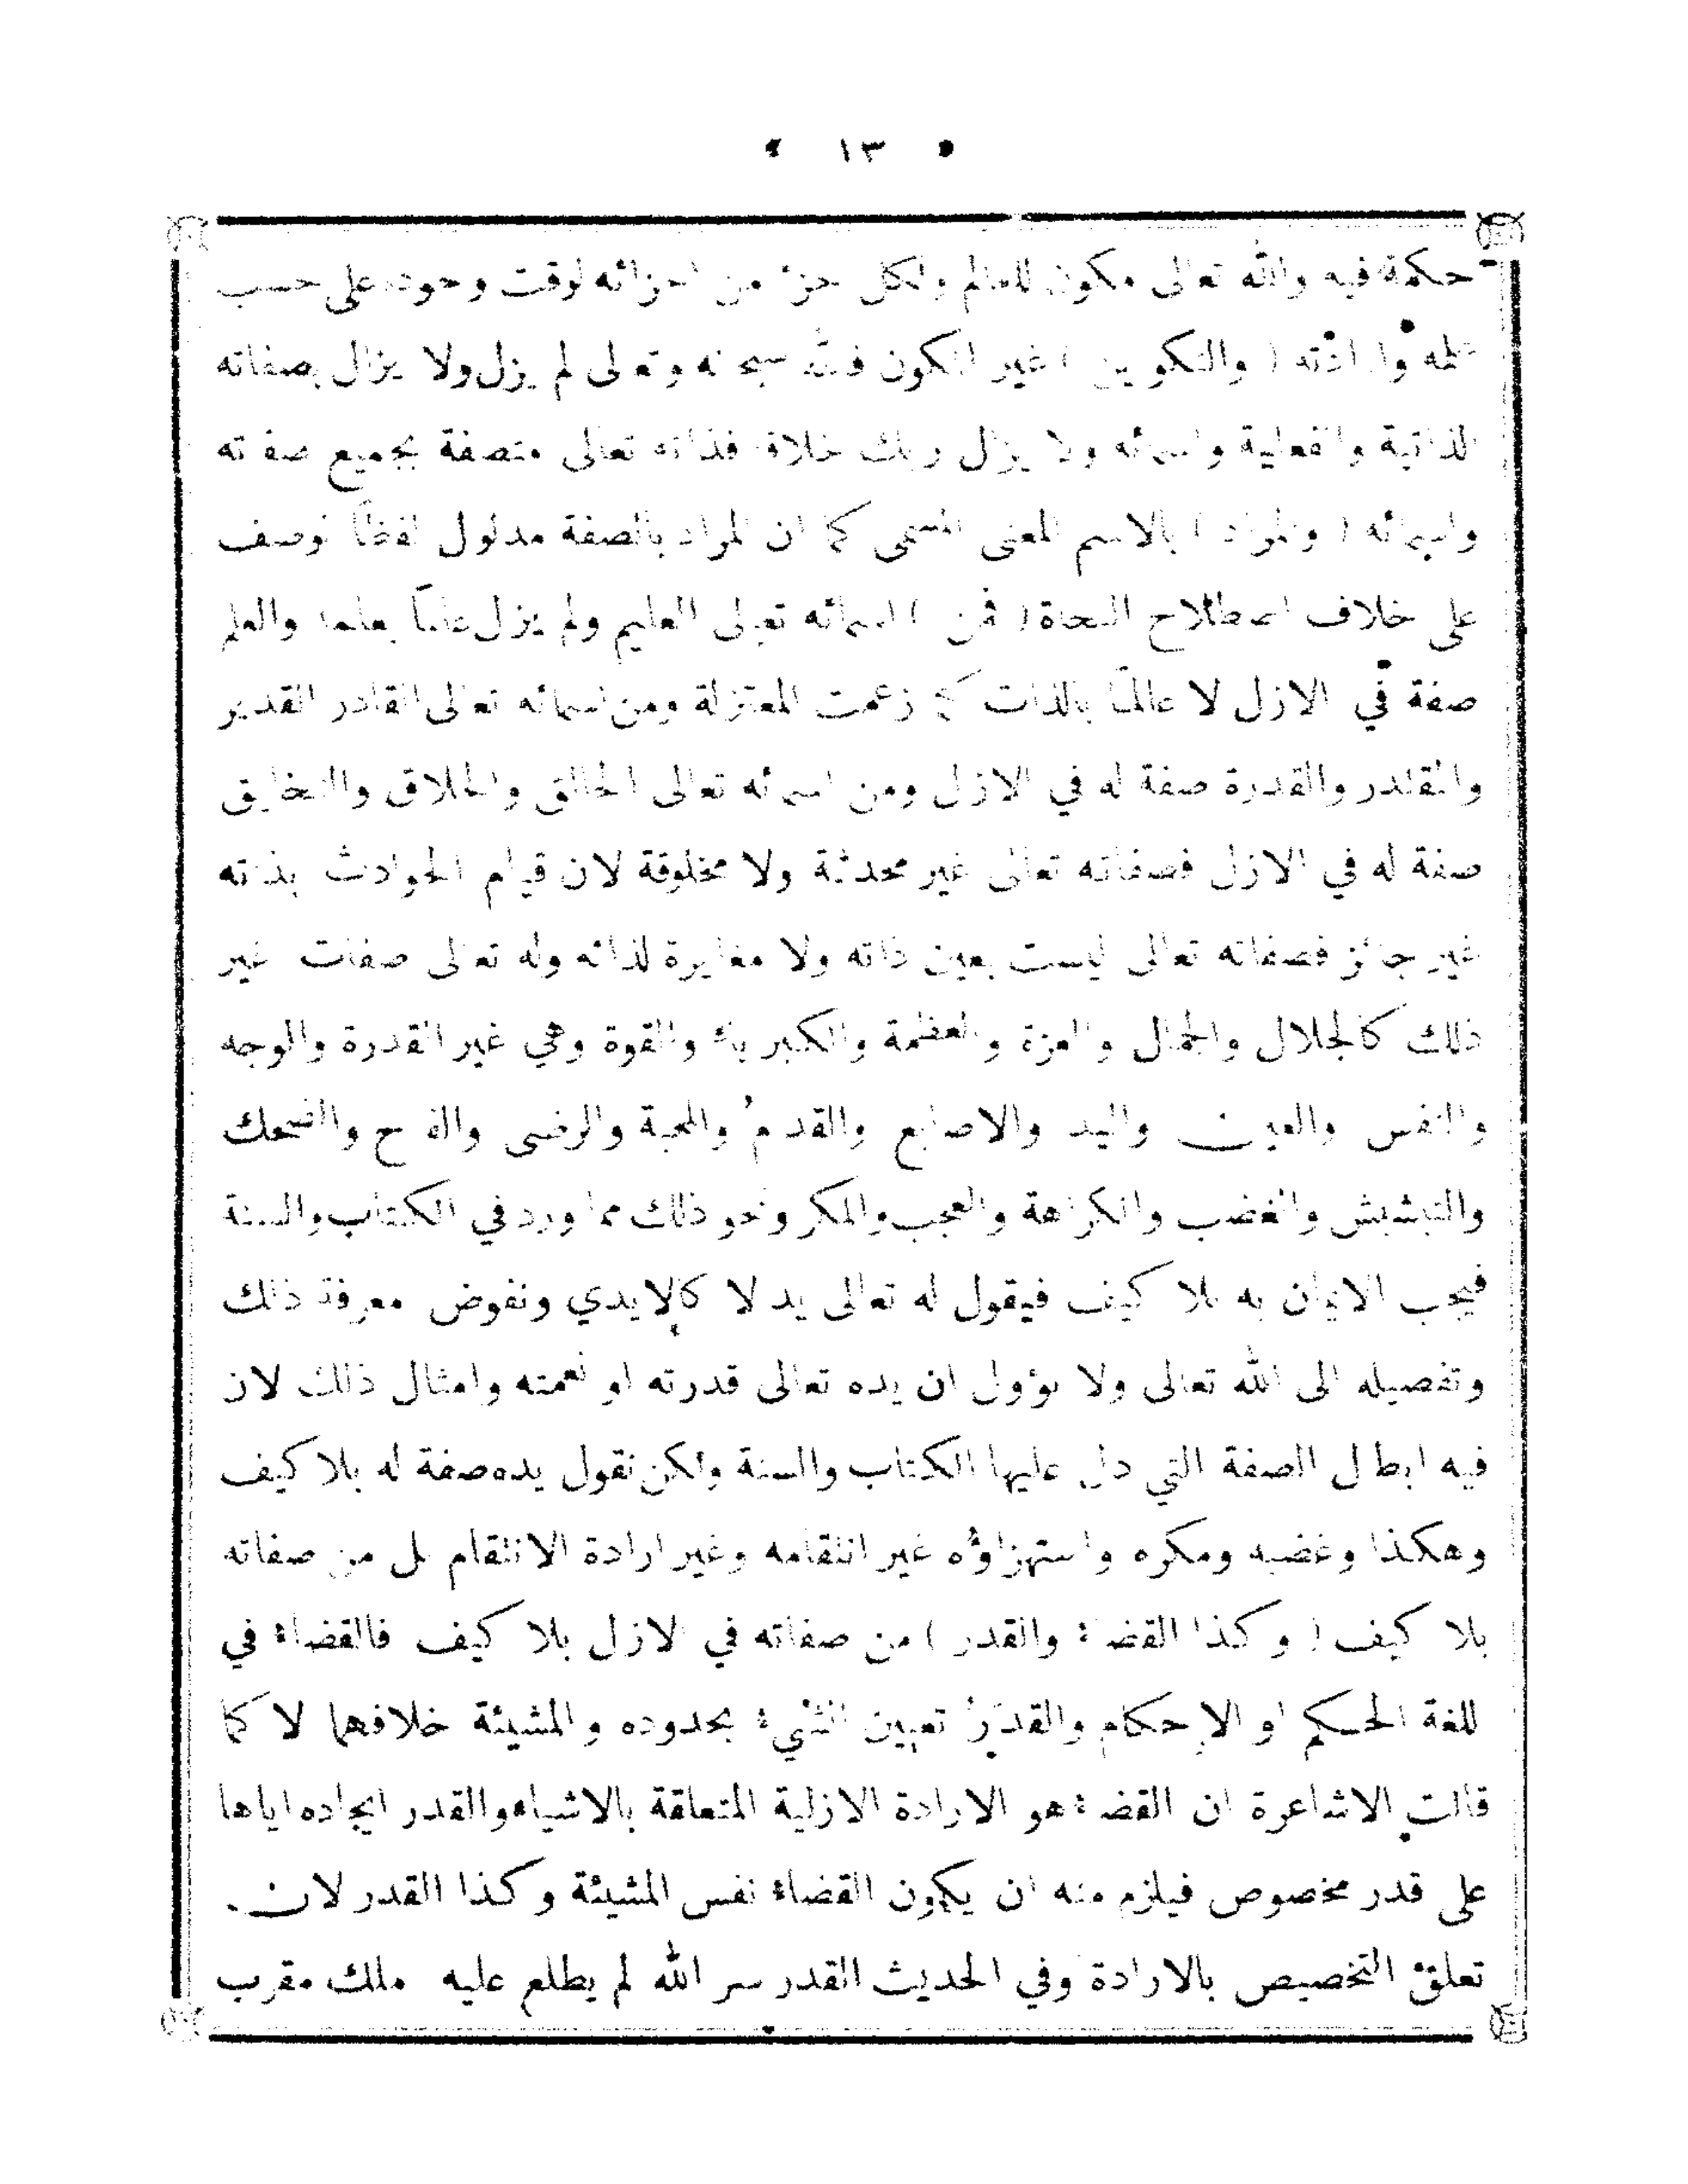 ﴿ ١٣ ﴾
حكمة فيه والله تعالى مكون للعالم ولكل جزء من اجزائه لوقت وجوده على حسب
علمه وارادته ( والتكوين ) غير المكون فالله سبحانه وتعالى لم يزل ولا يزال بصفاته
الذاتية والفعلية واسمائه ولا يزال ربك خلاقا فذاته تعالى متصفة بجميع صفاته
واسمائه ( والمراد ) بالاسم المعنى المسمى كما ان المراد بالصفة مدلول لفظا لوصف
على خلاف اصطلاح النحاة ( فمن ) اسمائه تعالى العليم ولم يزل عليماً بعلمه والعلم
صفة في الازل لا عالماً بالذات كما زعمت المعتزلة ومن اسمائه تعالى القادر القدير
والمقتدر والقدرة صفة له في الازل ومن اسمائه تعالى الخالق والخلاق والتخليق
صفة له في الازل فصفاته تعالى غير محدثة ولا مخلوقة لان قيام الحوادث بذاته
غير جائز فصفاته تعالى ليست بعين ذاته ولا مغايرة لذاته وله تعالى صفات غير
ذلك كالجلال والجمال والعزة والعظمة والكبرياء والقوة وهي غير القدرة والوجه
والنفس والعين واليد والاصابع والقدم والمحبة والرضى والفرح والضحك
والتبشبش والغضب والكراهة والعجب والمكر ونحو ذلك مما ورد في الكتاب والسنة
فيجب الايمان به بلا كيف فيقول له تعالى يد لا كالايدي ونفوض معرفة ذلك
وتفصيله الى الله تعالى ولا نؤول ان يده تعالى قدرته او نعمته وامثال ذلك لان
فيه ابطال الصفة التي دل عليها الكتاب والسنة ولكن نقول يده صفة له بلا كيف
وهكذا وغضبه ومكره واستهزاؤه غير انتقامه وغير ارادة الانتقام بل من صفاته
بلا كيف ( وكذا القضاء والقدر ) من صفاته في الازل بلا كيف فالقضاء في
اللغة الحكم او الإحكام والقدر تعيين الشيء بحدوده والمشيئة خلافهما لا كما
قالت الاشاعرة ان القضاء هو الارادة الازلية المتعلقة بالاشياء والقدر ايجاده اياها
على قدر مخصوص فيلزم منه ان يكون القضاء نفس المشيئة وكذا القدر لان
تعلق التخصيص بالارادة وفي الحديث القدر سر الله لم يطلع عليه ملك مقرب